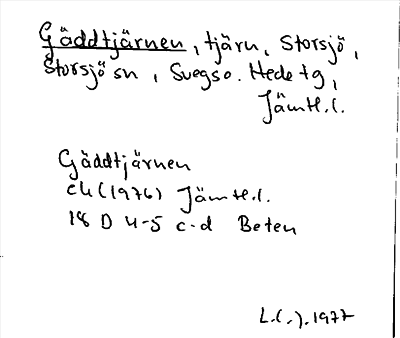 Gäddtjärnen, tjärn, Storsjö,
Storsjö sn, Svegs o. Hede tg,
Jämtl.l.
Gäddtjärnen
ek (1976) Jämtl.l.
18 D 4-5 c-d Beten
L.(.).1977